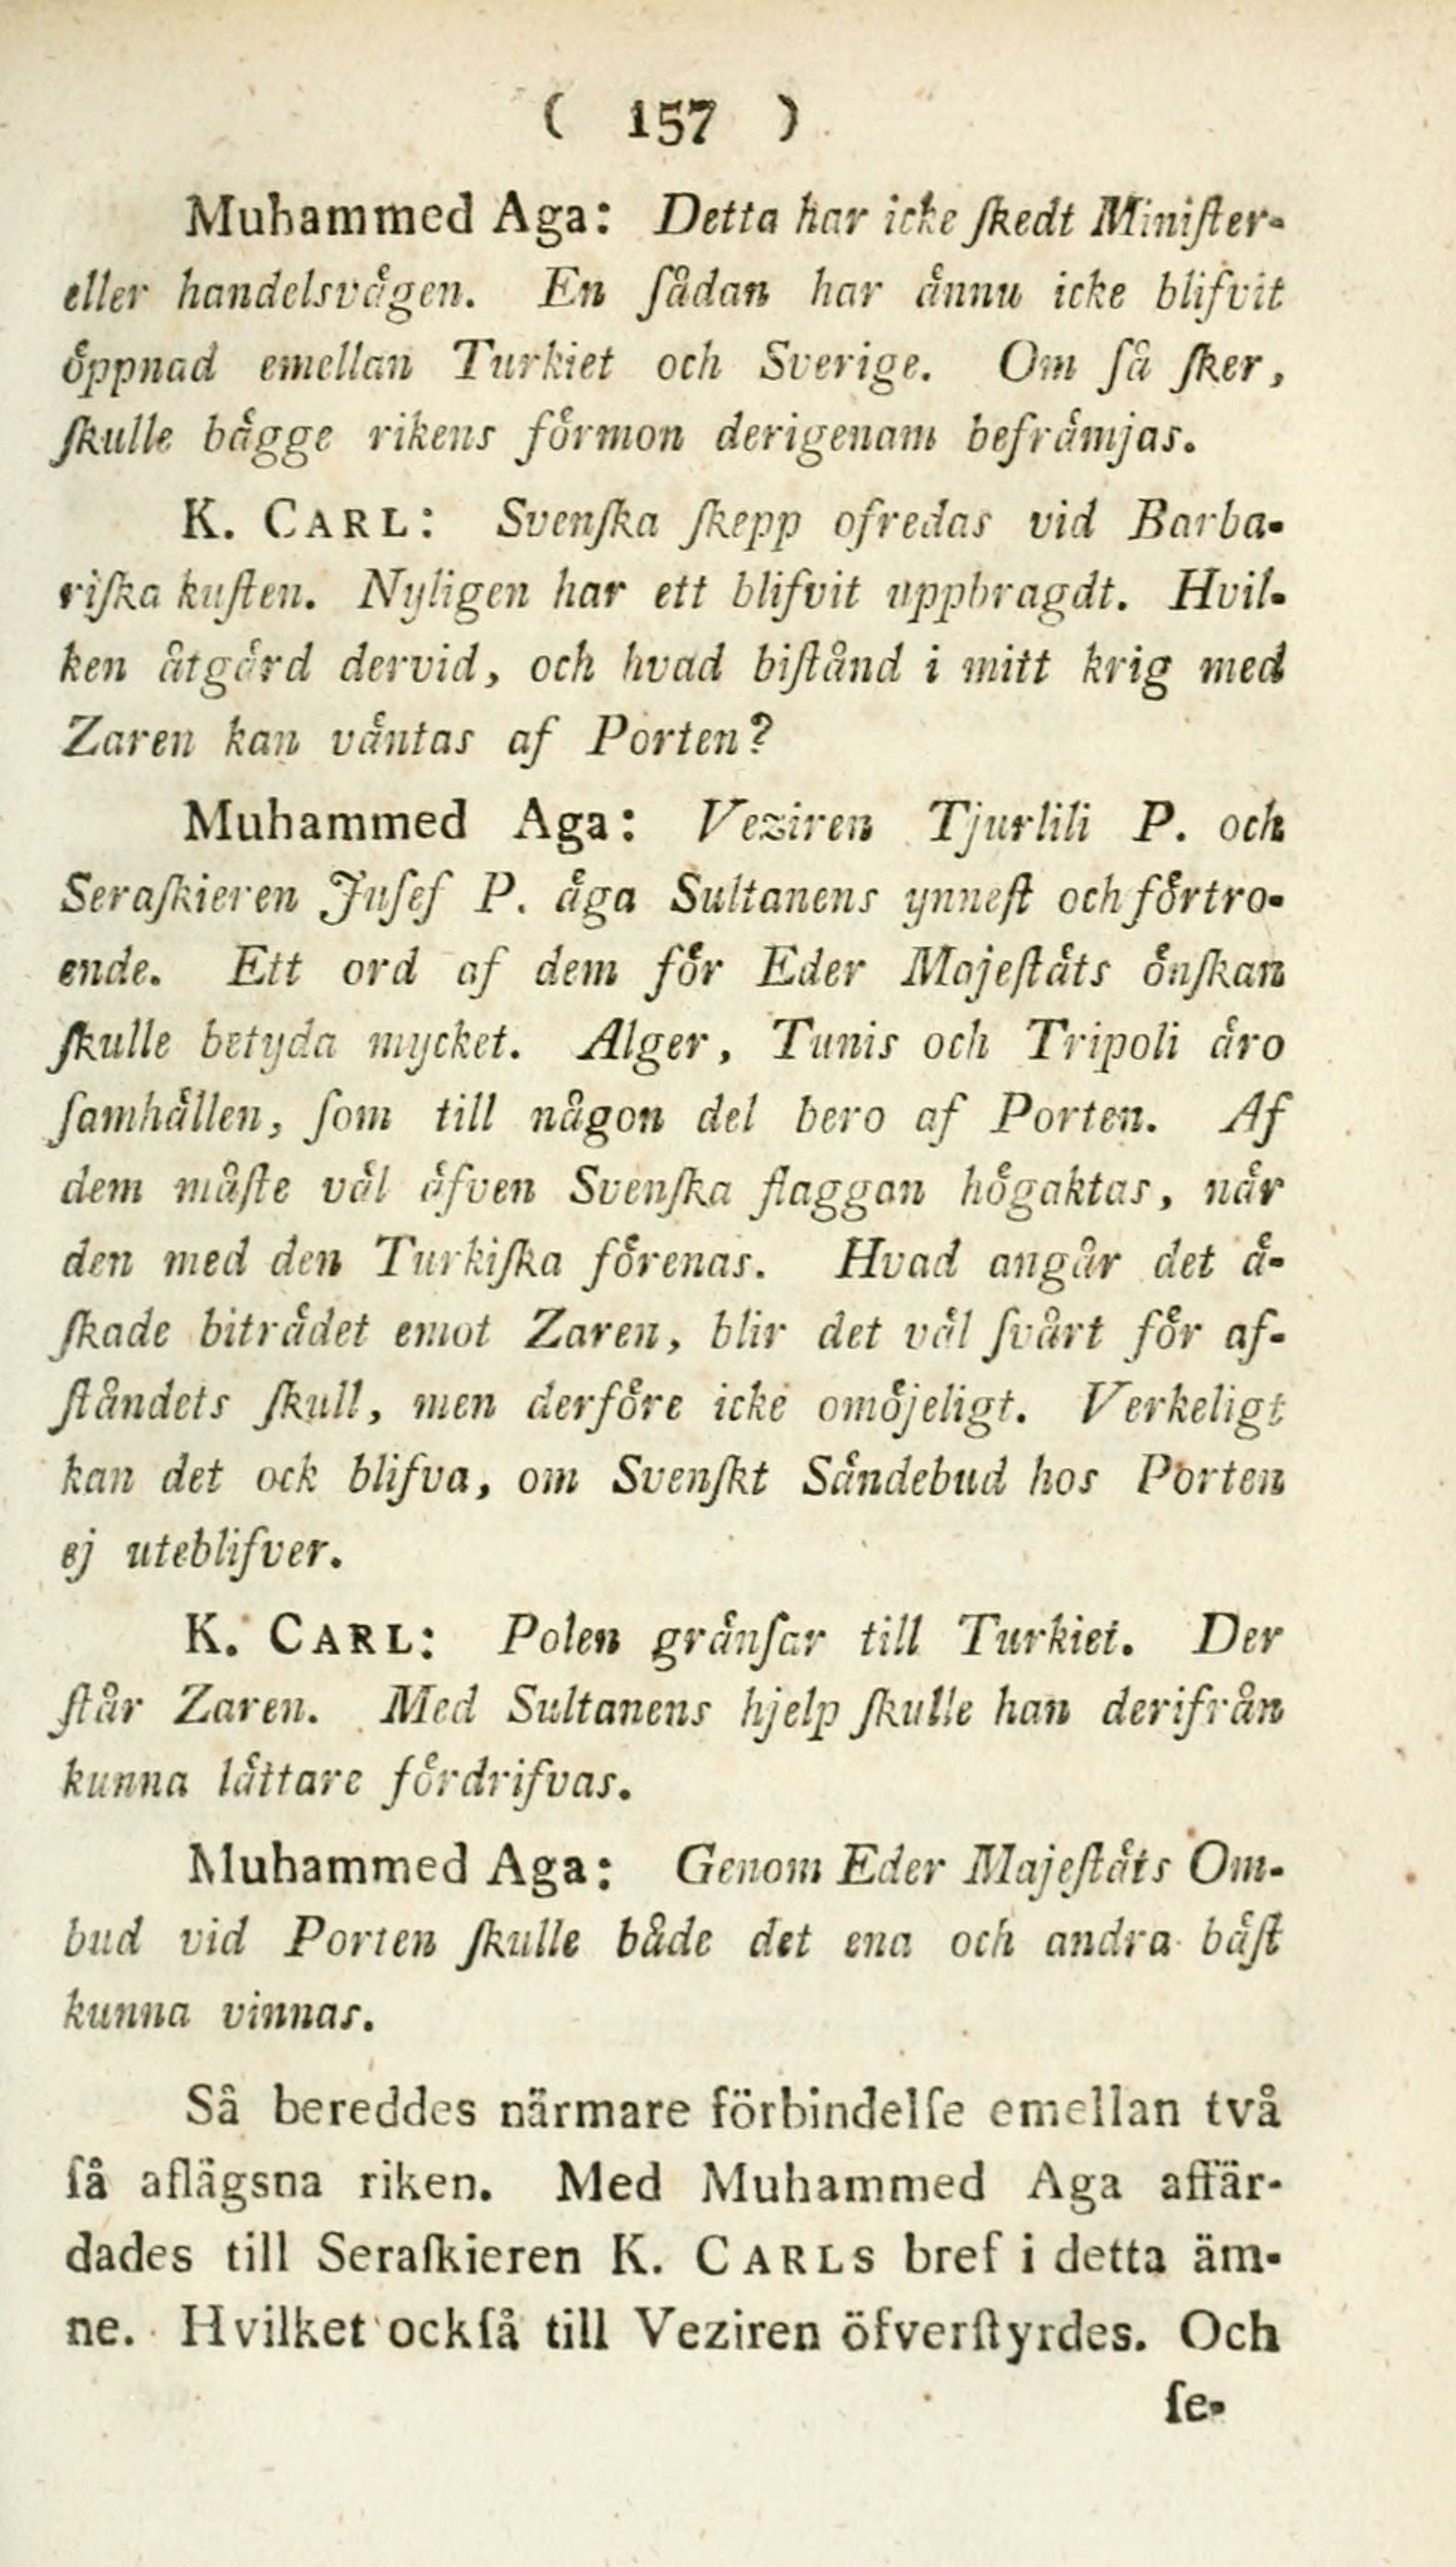 ( 157 )
Muhammed Aga: Detta har icke ſkedt Miniſter-
eller handelsvägen. En ſådan har ännu icke blifvit
öppnad emellan Turkiet och Sverige. Om ſå ſker,
ſkulle bägge rikens förmon derigenam befrämjas.
K. CARL: Svenſka ſkepp ofredas vid Barba-
riſka kuſten. Nyligen har ett blifvit uppbragdt. Hvil-
ken åtgärd dervid, och hvad biſtånd i mitt krig med
Zaren kan väntas af Porten?
Muhammed Aga: Veziren Tjurlili P. och
Seraſkieren Juſef P. äga Sultanens ynneſt och förtro-
ende. Ett ord af dem för Eder Majeſtäts önſkan
ſkulle betyda mycket. Alger, Tunis och Tripoli äro
ſamhällen, ſom till någon del bero af Porten. Af
dem måſte väl äfven Svenſka flaggan högaktas, när
den med den Turkiſka förenas. Hvad angår det ä-
ſkade biträdet emot Zaren, blir det väl ſvårt för af-
ſtåndets ſkull, men derföre icke omöjeligt. Verkeligt
kan det ock blifva, om Svenſkt Sändebud hos Porten
ej uteblifver.
K. CARL: Polen gränſar till Turkiet. Der
ſtår Zaren. Med Sultanens hjelp ſkulle han derifrån
kunna lättare fördrifvas.
Muhammed Aga: Genom Eder Majeſtäts Om-
bud vid Porten ſkulle både det ena och andra bäſt
kunna vinnas.
Så bereddes närmare förbindelſe emellan två
ſå aflägsna riken. Med Muhammed Aga affär-
dades till Seraſkieren K. CARLS bref i detta äm-
ne. Hvilket ockſå till Veziren öfverſtyrdes. Och
ſe-